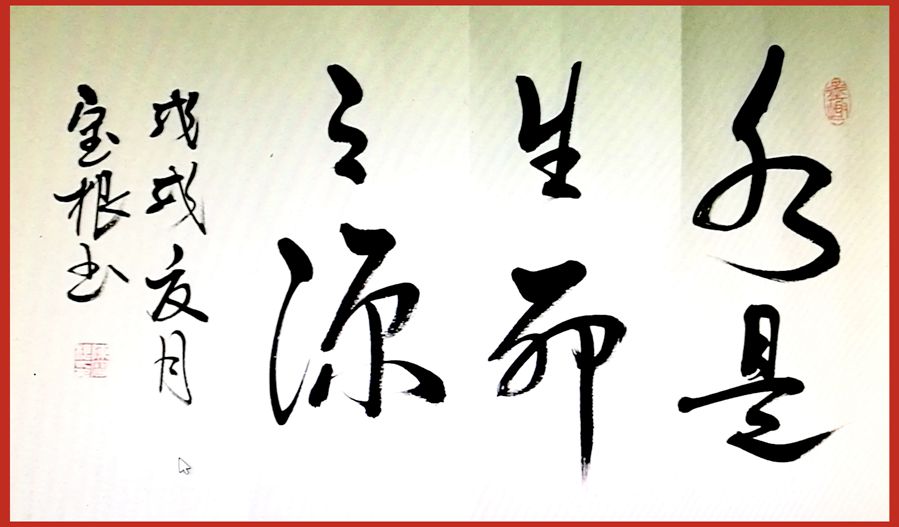 水是
生命
之源
戊戌夏月
宝根书